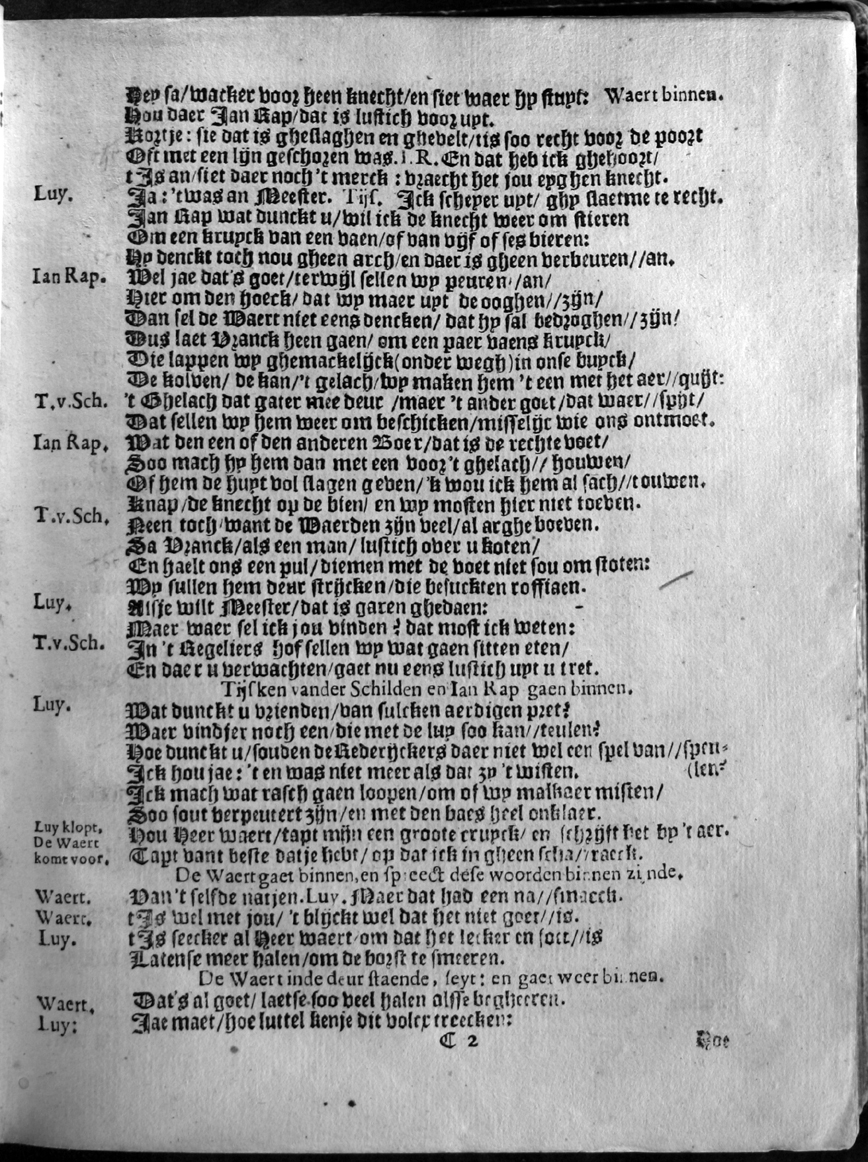 Hey sa/wacker voor heen knecht/en siet waer hy stupt: Waert binnen.
Hou daer Jan Rap/dat is lustich voor upt.
Kortje: sie dat is gheslaghen en ghevelt/tis soo recht voor de poort
Oft met een lijn geschoren was. I. R. En dat heb ick ghehoort/
t Is an/siet daer noch 't merck: vraecht het jou eyghen knecht.
Luy. Ja: 't was an Meester. Tijs. Ick scheper upt/ ghy slaetme te recht.
Jan Rap wat dunckt u/wil ick de knecht weer om stieren
Om een kruyck van een vaen/of van vijf of ses bieren:
Hy denckt toch nou gheen arch/en daer is gheen verbeuren//an.
Ian Rap. Wel jae dat's goet/terwijl sellen wy peuren//an/
Hier om den hoeck/ dat wy maer upt de ooghen//zijn/
Dan sel de Waert niet eens dencken/ dat hy sal bedroghen//zijn/
Dus laet Vranck heen gaen/ om een paer vaens kruyck/
Die lappen wy ghemackelijck(onder wegh)in onse buyck/
De kolven/ de kan/'t gelach/wy maken hem 't een met het aer//quijt:
T.v.Sch. 't Ghelach dat gater mee deur/maer 't ander goet/dat waer//spijt/
Dat sellen wy hem weer om beschicken/misselijc wie ons ontmoet.
Ian Rap. Wat den een of den anderen Boer/dat is de rechte voet/
Soo mach hy hem dan met een voor't ghelach// houwen/
Of hem de huyt vol slagen geven/'k wou ick hem al sach//touwen.
Knap/de knecht op de bien/ en wy mosten hier niet toeven.
T.v.Sch. Neen toch/want de Waerden zijn veel/al arghe boeven.
Sa Vranck/als een man/ lustich over u koten/
En haelt ons een pul/diemen met de voet niet sou om stoten:
Wy sullen hem deur strijcken/die besuckten roffiaen.
Luy. Alsje wilt Meester/dat is garen ghedaen:
Maer waer sel ick jou vinden? dat most ick weten:
T.v.Sch. In 't Regeliers hof sellen wy wat gaen sitten eten/
En daer u verwachten/gaet nu eens lustich upt u tret.
Tijsken vander Schilden en Ian Rap gaen binnen.
Luy. Wat dunckt u vrienden/van sulcken aerdigen pret?
Waer vindjer noch een/die met de luy soo kan//teulen?
Hoe dunckt u/souden de Rederijckers daer niet wel een spel van//speu-
Ick hou jae: 't en was niet meer als dat zy 't wisten. (len?
Ick mach wat rasch gaen loopen/om of wy malkaer misten/
Soo sout verpeutert zijn/en met den baes heel onklaer.
Luy klopt, De Waert komt voor. Hou Heer waert/tapt mijn een groote cruyck/ en schrijft het by 't aer.
Tapt vant beste datje hebt/ op dat ick in gheen scha//raeck.
De Waert gaet binnen, en spreeckt dese woorden binnen zijnde.
Waert. Van't selfde natjen. Luy. Maer dat had een na//smaeck.
Waert. t Is wel met jou/ 't blijckt wel dat het niet goet//is.
Luy. t Is seecker al Heer waert/om dat het lecker en soet//is
Latense meer halen/om de borst te smeeren.
De Waert inde deur staende, seyt: en gaet weer binnen.
Waert. Dat's al goet/ laetse soo veel halen alsse begheeren.
Luy: Jae maet/hoe luttel kenje dit volcx treecken:
C 2 Hoe